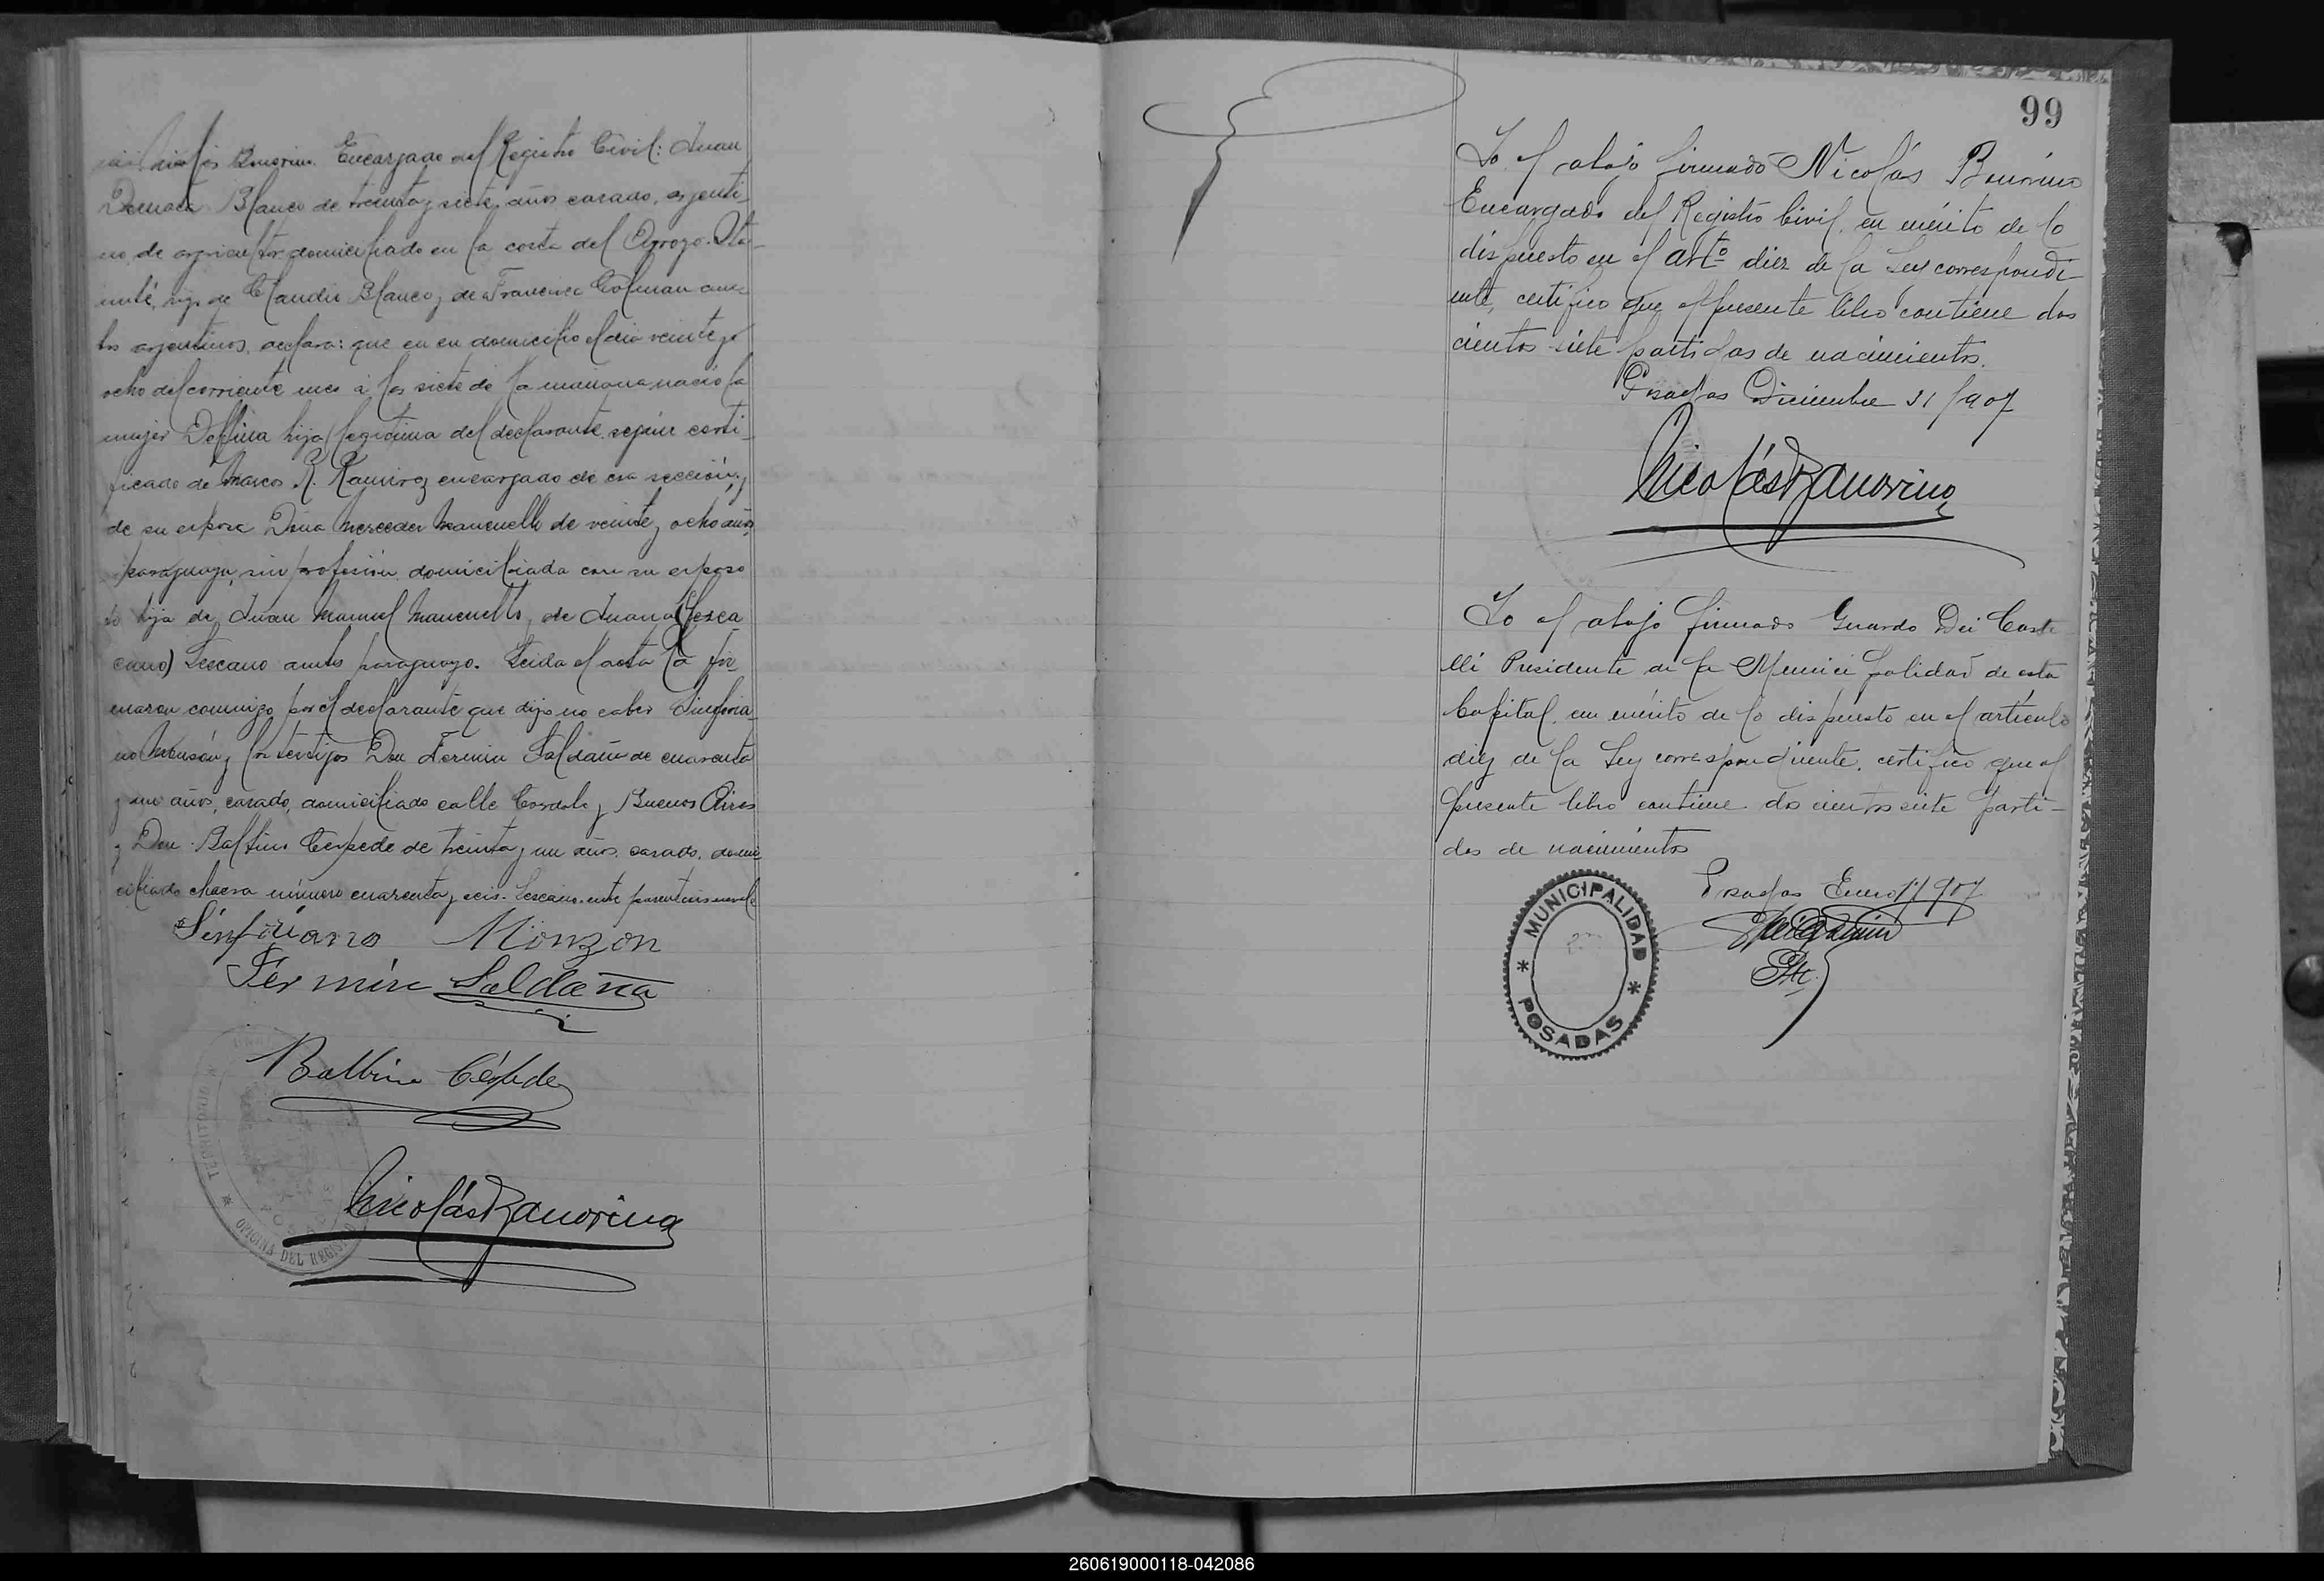 Nicolás Bonorino Encargado del Registro Civil: Juan
Blanco de treinta y siete años casado, argenti-
no de agricultor domiciliado en la costa del Arroyo Ita-
imbé, hijo de Claudio Blanco y de Francisca Colman am-
bos argentinos, declara: que en su domicilio el dia veinte y
ocho del corriente mes á las siete de la mañana nació la
mujer Delfina hija legitima del declarante según certi-
ficado de Marcos R. Ramirez encargado de esa sección, y
de su esposa Doña Mercedes de veinte y ocho años,
paraguaya, sin profesión domiciliada con su esposo
hija de Juan Manuel y de Juana (Lesca
cano) Lescano ambos paraguayo. Leida el acta la fir-
maron conmigo por el declarante que dijo no saber Sinforia-
no Monzón y los testigos Don Fermin Saldaña de cuarenta
y un años, casado, domiciliado calle Cordoba y Buenos Aires
y Don Balbino Cespede de treinta y un años, casado, domi-
ciliado chacra número cuarenta y seis. Lescano entre parentesis no vale
Sinforiano Monzon
Fermin Saldaña
Balbino Céspede
Nicolás Bonorino
TERRITORIO
OFICINA DEL REGISTRO
99
Yo el abajo firmado Nicolás Bonorino
Encargado del Registro Civil, en mérito de lo
dispuesto en el artº diez de la Ley correspondi-
ente, certifico que el presente libro contiene dos
cientos siete partidas de nacimientos.
Posadas Diciembre 31/907
Nicolás Bonorino
Yo el abajo firmado Genardo Dei Caste
lli Presidente de la Municipalidad de esta
Capital, en mérito de lo dispuesto en el artículo
diez de la Ley correspondiente, certifico que el
presente libro contiene dos cientos siete parti-
das de nacimientos
Posadas Enero 1º/907
MUNICIPALIDAD
POSADAS
Pte
260619000118-042086